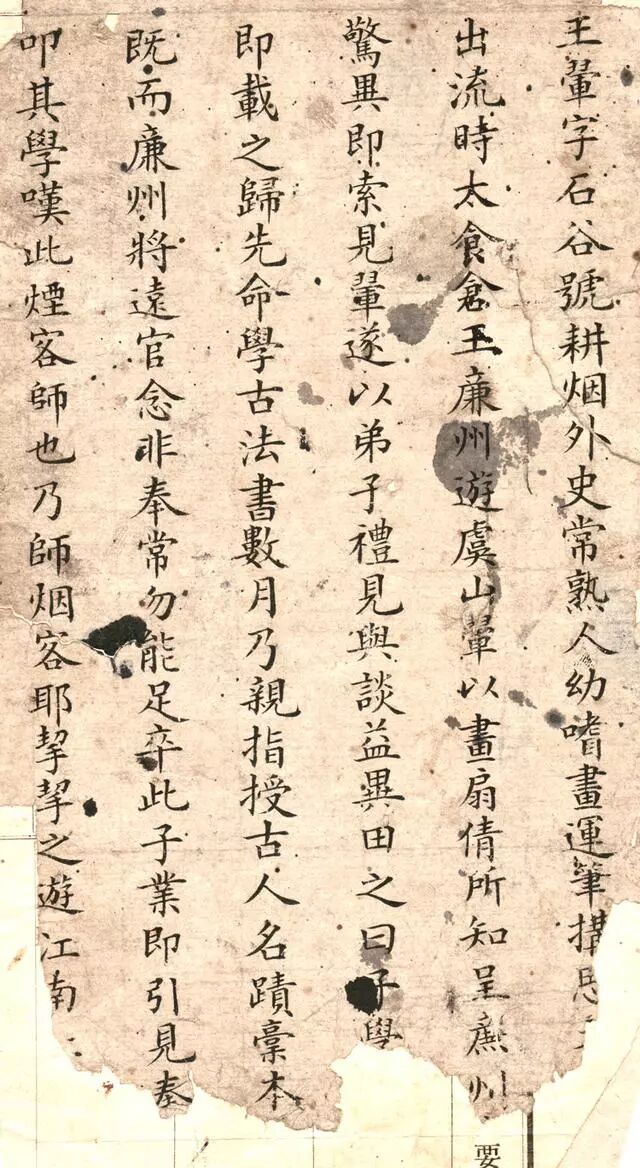 王翬字石谷號耕烟外史常熟人幼嗜畫運筆構思
出流時太食倉王廉州遊虞山翬以畫扇倩所知呈廉州
驚異即索見翬遂以弟子禮見與談益異田之曰子學
即載之歸先命學古法書數月乃親指授古人名蹟稾本
既而廉州將遠官念非奉常勿能足卒此子業即引見奉
叩其學嘆此煙客師也乃師烟客耶挈挈之遊江南
要